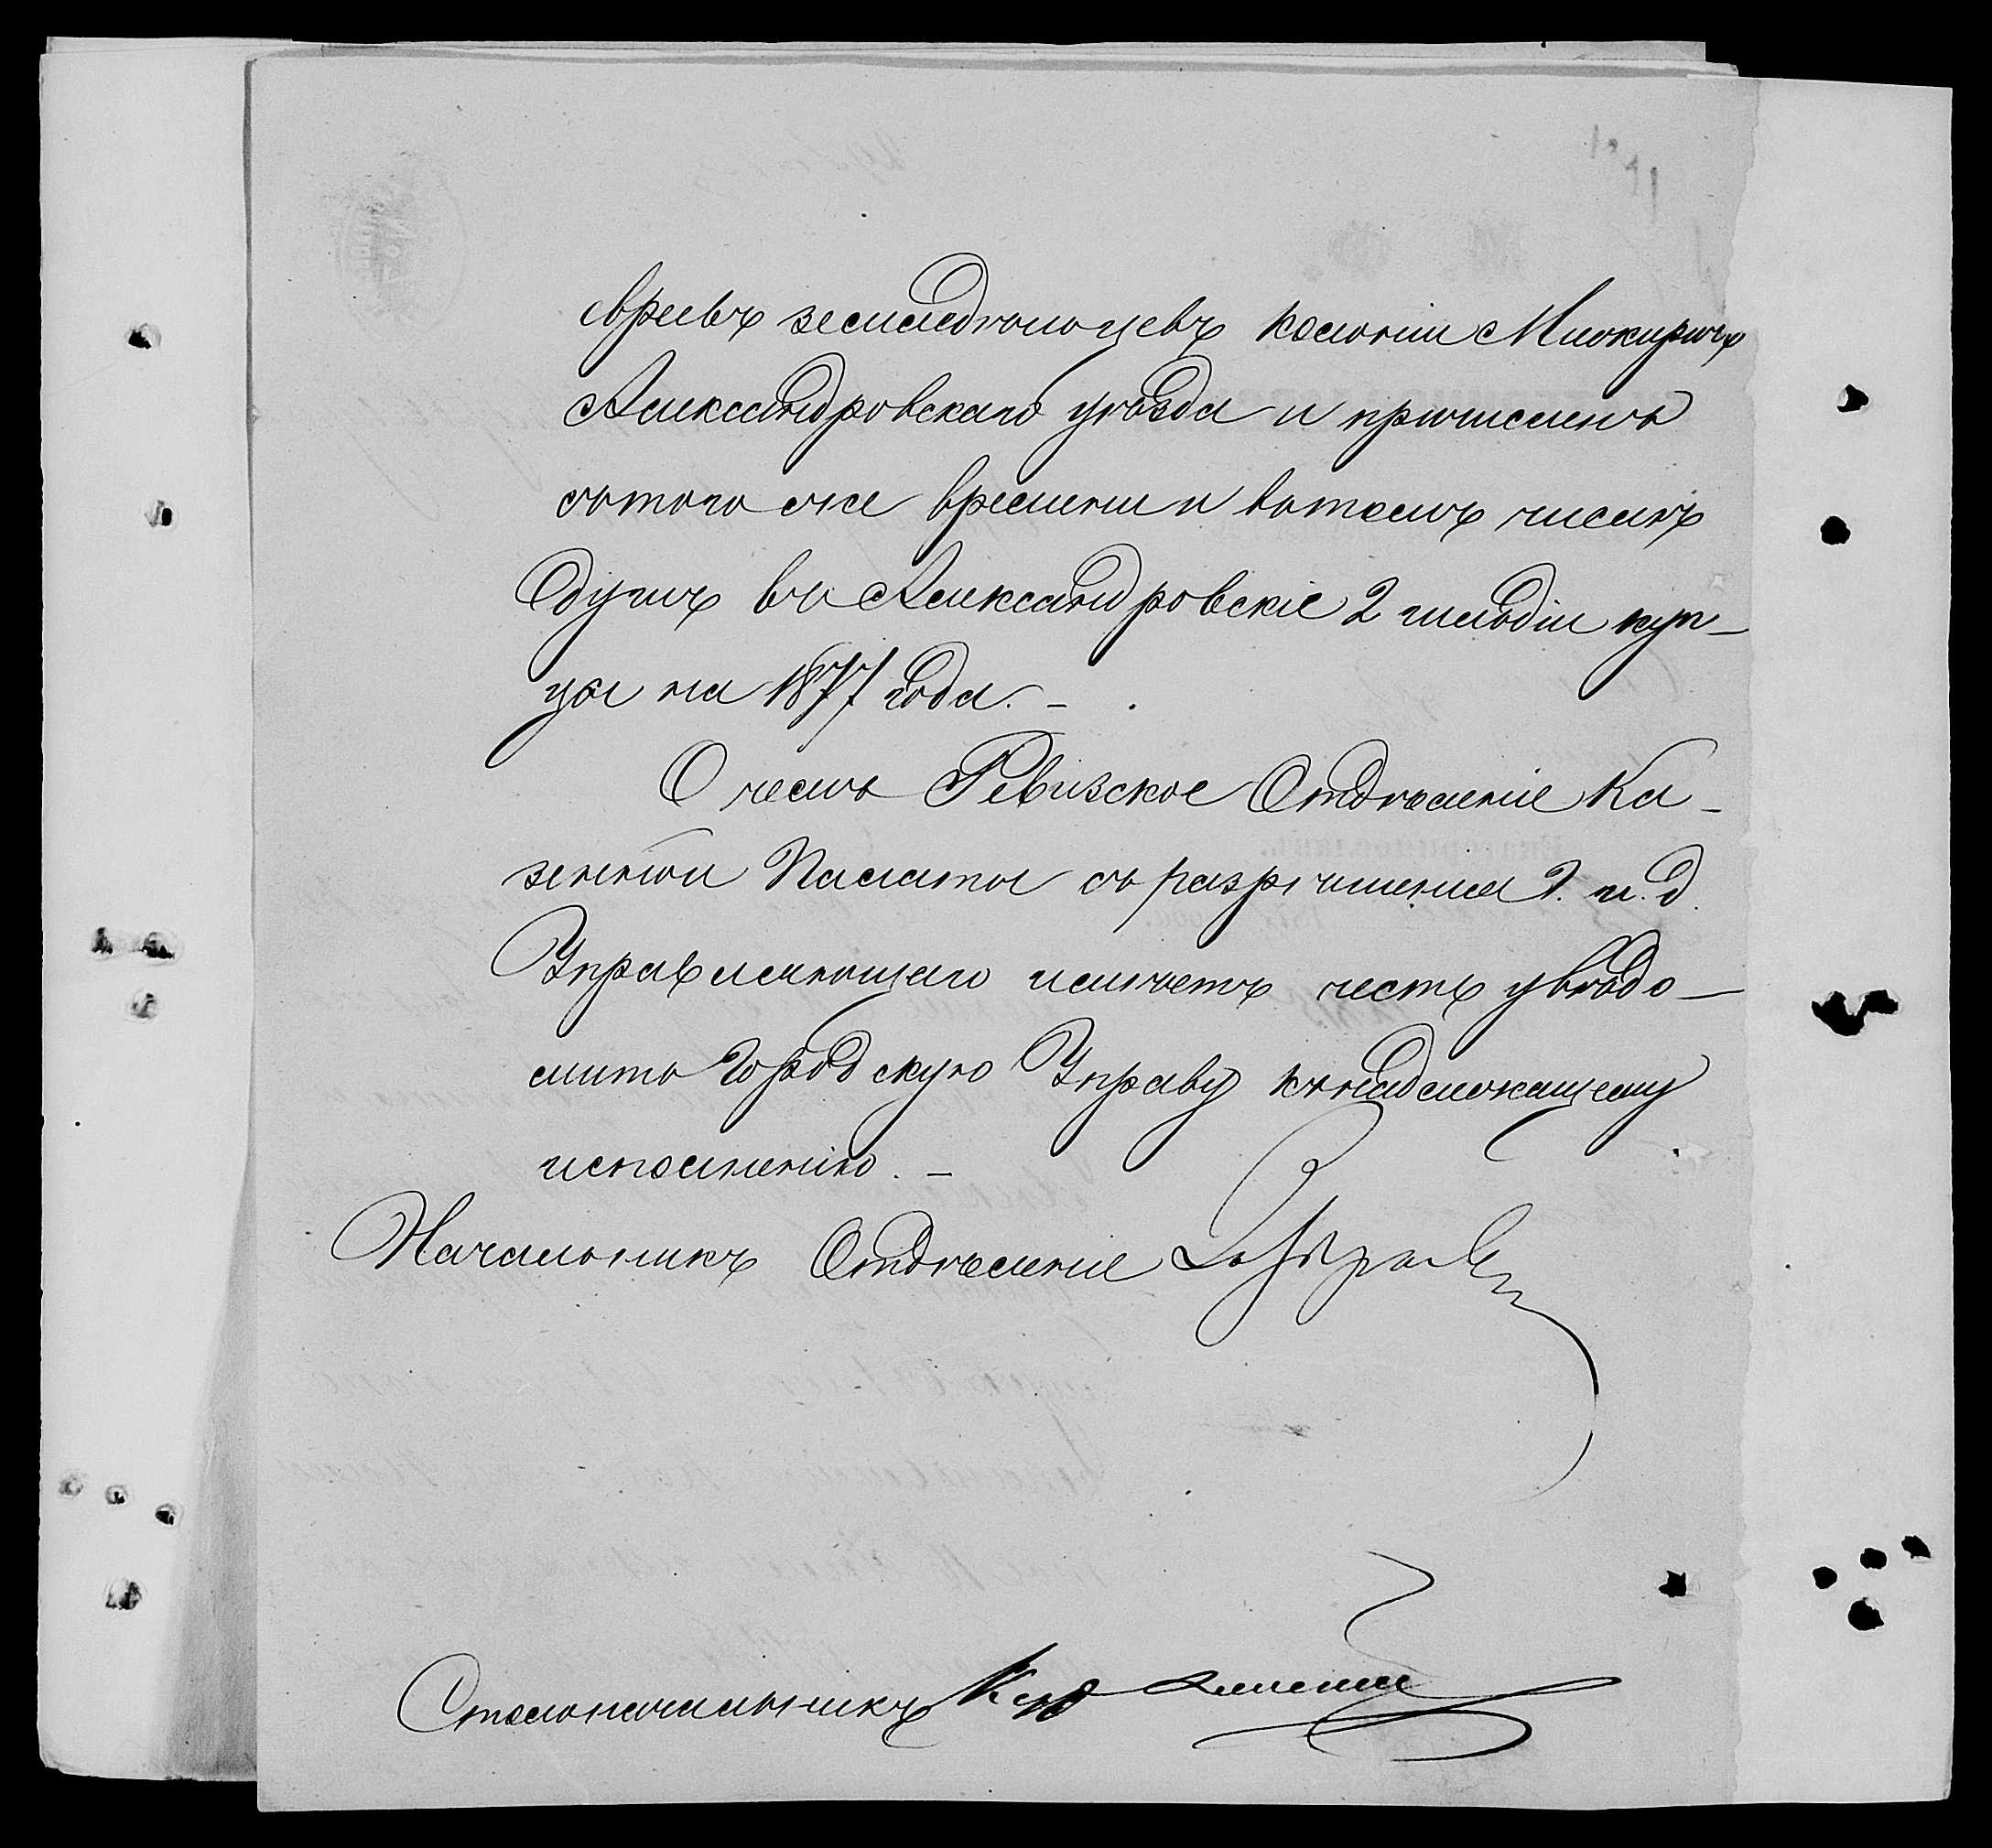 евреевъ земледѣльцевъ колоніи Межиричъ
Александровскаго уѣзда и причисленъ
сътого же времени и вътомъ числѣ
душъ въ Александровскіе 2 гильдіи куп-
цы на 1877 года. -
О чемъ Ревизское Отдѣленіе Ка-
зенной Палаты съ разрѣшенія Г. и. д.
Управляющаго имѣетъ честь увѣдо-
мить Городскую Управу кънадлежащему
исполненію. -
Начальникъ Отдѣленія
Столоначальникъ